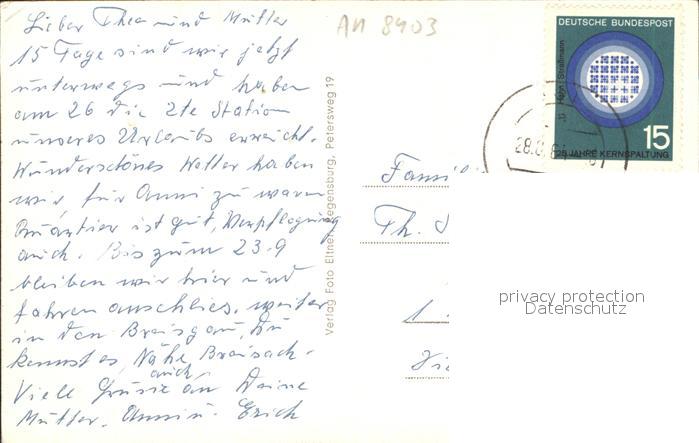 Lieber Theo und Mutter
15 Tage sind wir jetzt
unterwegs und haben
am 26 die 2te Station
unseres Urlaubs erreicht.
Wunderschönes Wetter haben
wir, für Anni zu warm
Quartier ist gut, Verpflegung
auch. Bis zum 23.9
bleiben wir hier und
fahren anschlies. weiter
in den Breisgau, Du
kennst es, Nähe Breisach.
Viele Grüsse auch an Deine
Mutter. Anni u. Erich
AN 8403
Verlag Foto Eltner, Regensburg, Petersweg 19
DEUTSCHE BUNDESPOST
Hahn/Straßmann
15
25 JAHRE KERNSPALTUNG
28.
Famil
Th.
privacy protection
Datenschutz